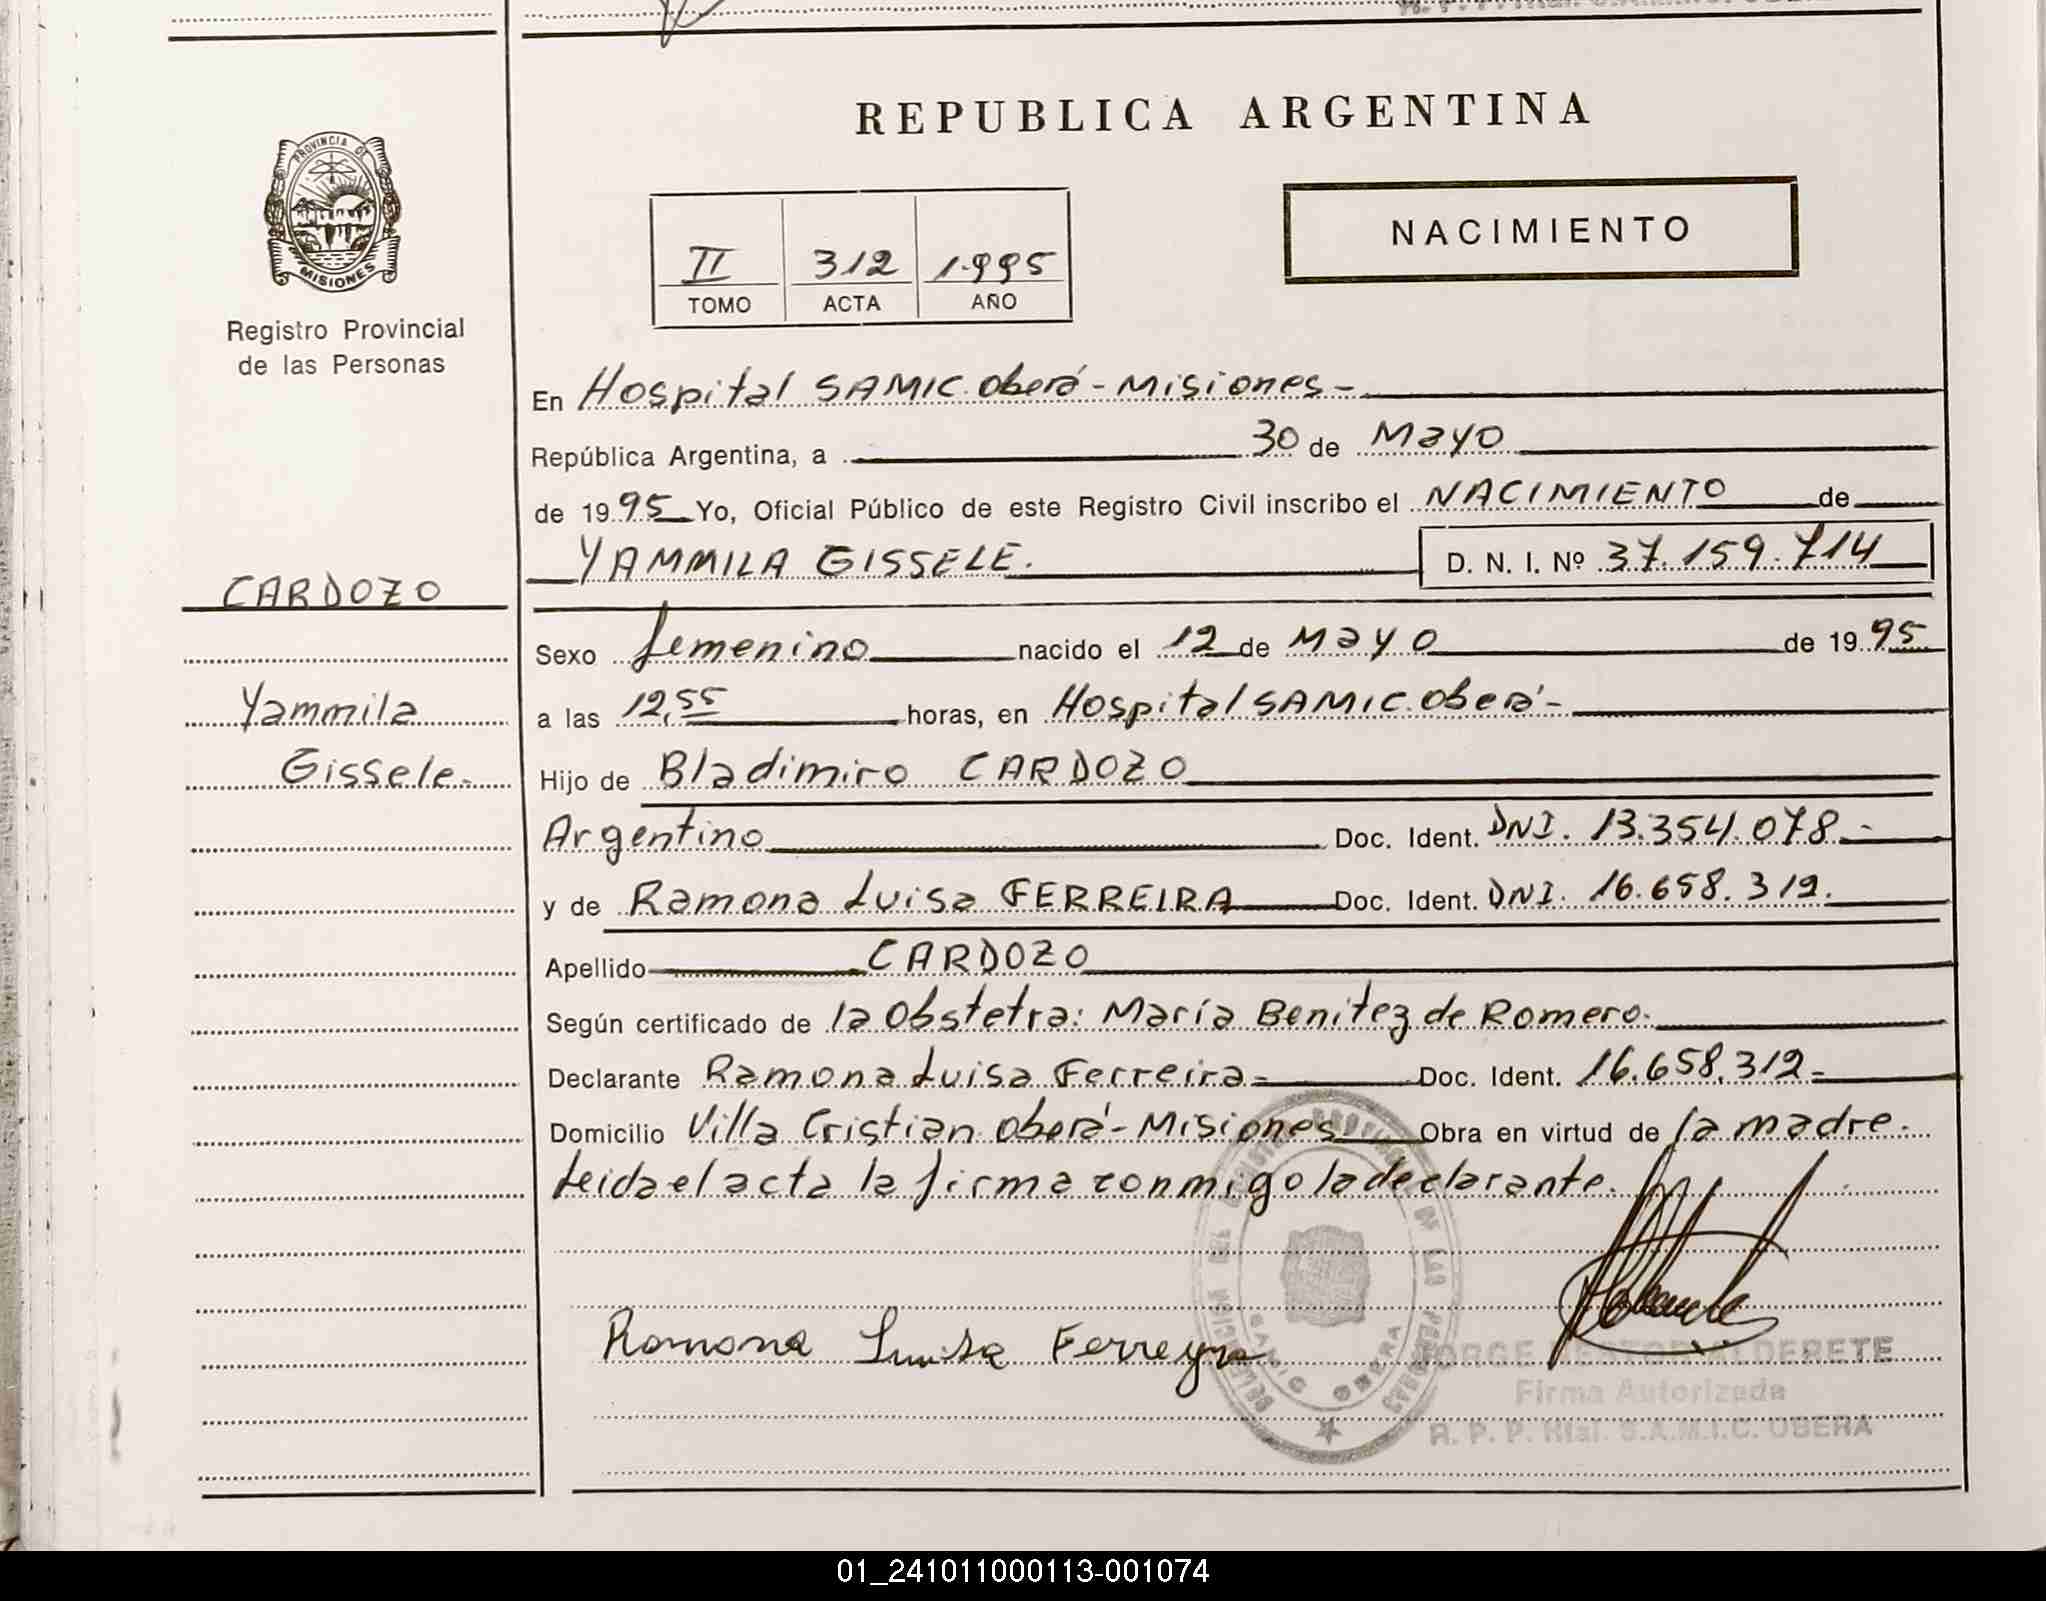 REPUBLICA ARGENTINA
PROVINCIA DE
MISIONES
Registro Provincial
de las Personas
NACIMIENTO
II 312 1995
TOMO ACTA AÑO
En Hospital SAMIC. Oberá - Misiones -
República Argentina, a 30 de Mayo
de 1995 Yo, Oficial Público de este Registro Civil inscribo el NACIMIENTO de
YAMMILA GISSELE. D. N. I. Nº 37.159.714
CARDOZO
Yammila
Gissele.
Sexo femenino nacido el 12 de Mayo de 1995
a las 12,55 horas, en Hospital SAMIC. Oberá -
Hijo de Bladimiro CARDOZO
Argentino Doc. Ident. DNI. 13.354.078.-
y de Ramona Luisa FERREIRA Doc. Ident. DNI. 16.658.312.
Apellido CARDOZO
Según certificado de la Obstetra: María Benitez de Romero.
Declarante Ramona Luisa Ferreira - Doc. Ident. 16.658.312 -
Domicilio Villa Cristian Oberá - Misiones Obra en virtud de la madre.
Leida el acta la firma conmigo la declarante.
Ramona Luisa Ferreyra
SAMIC OBERA
JORGE NESTOR ALDERETE
Firma Autorizada
R. P. P. Htal. S.A.M.I.C. OBERA
01_241011000113-001074